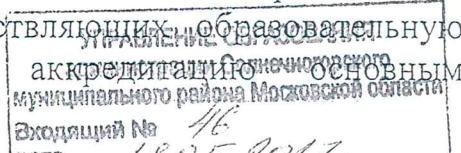 ствляющих образовательную
УПРАВЛЕНИЕ
аккредитацию основным
Солнечногорского
муниципального района Московской области
Входящий № 46